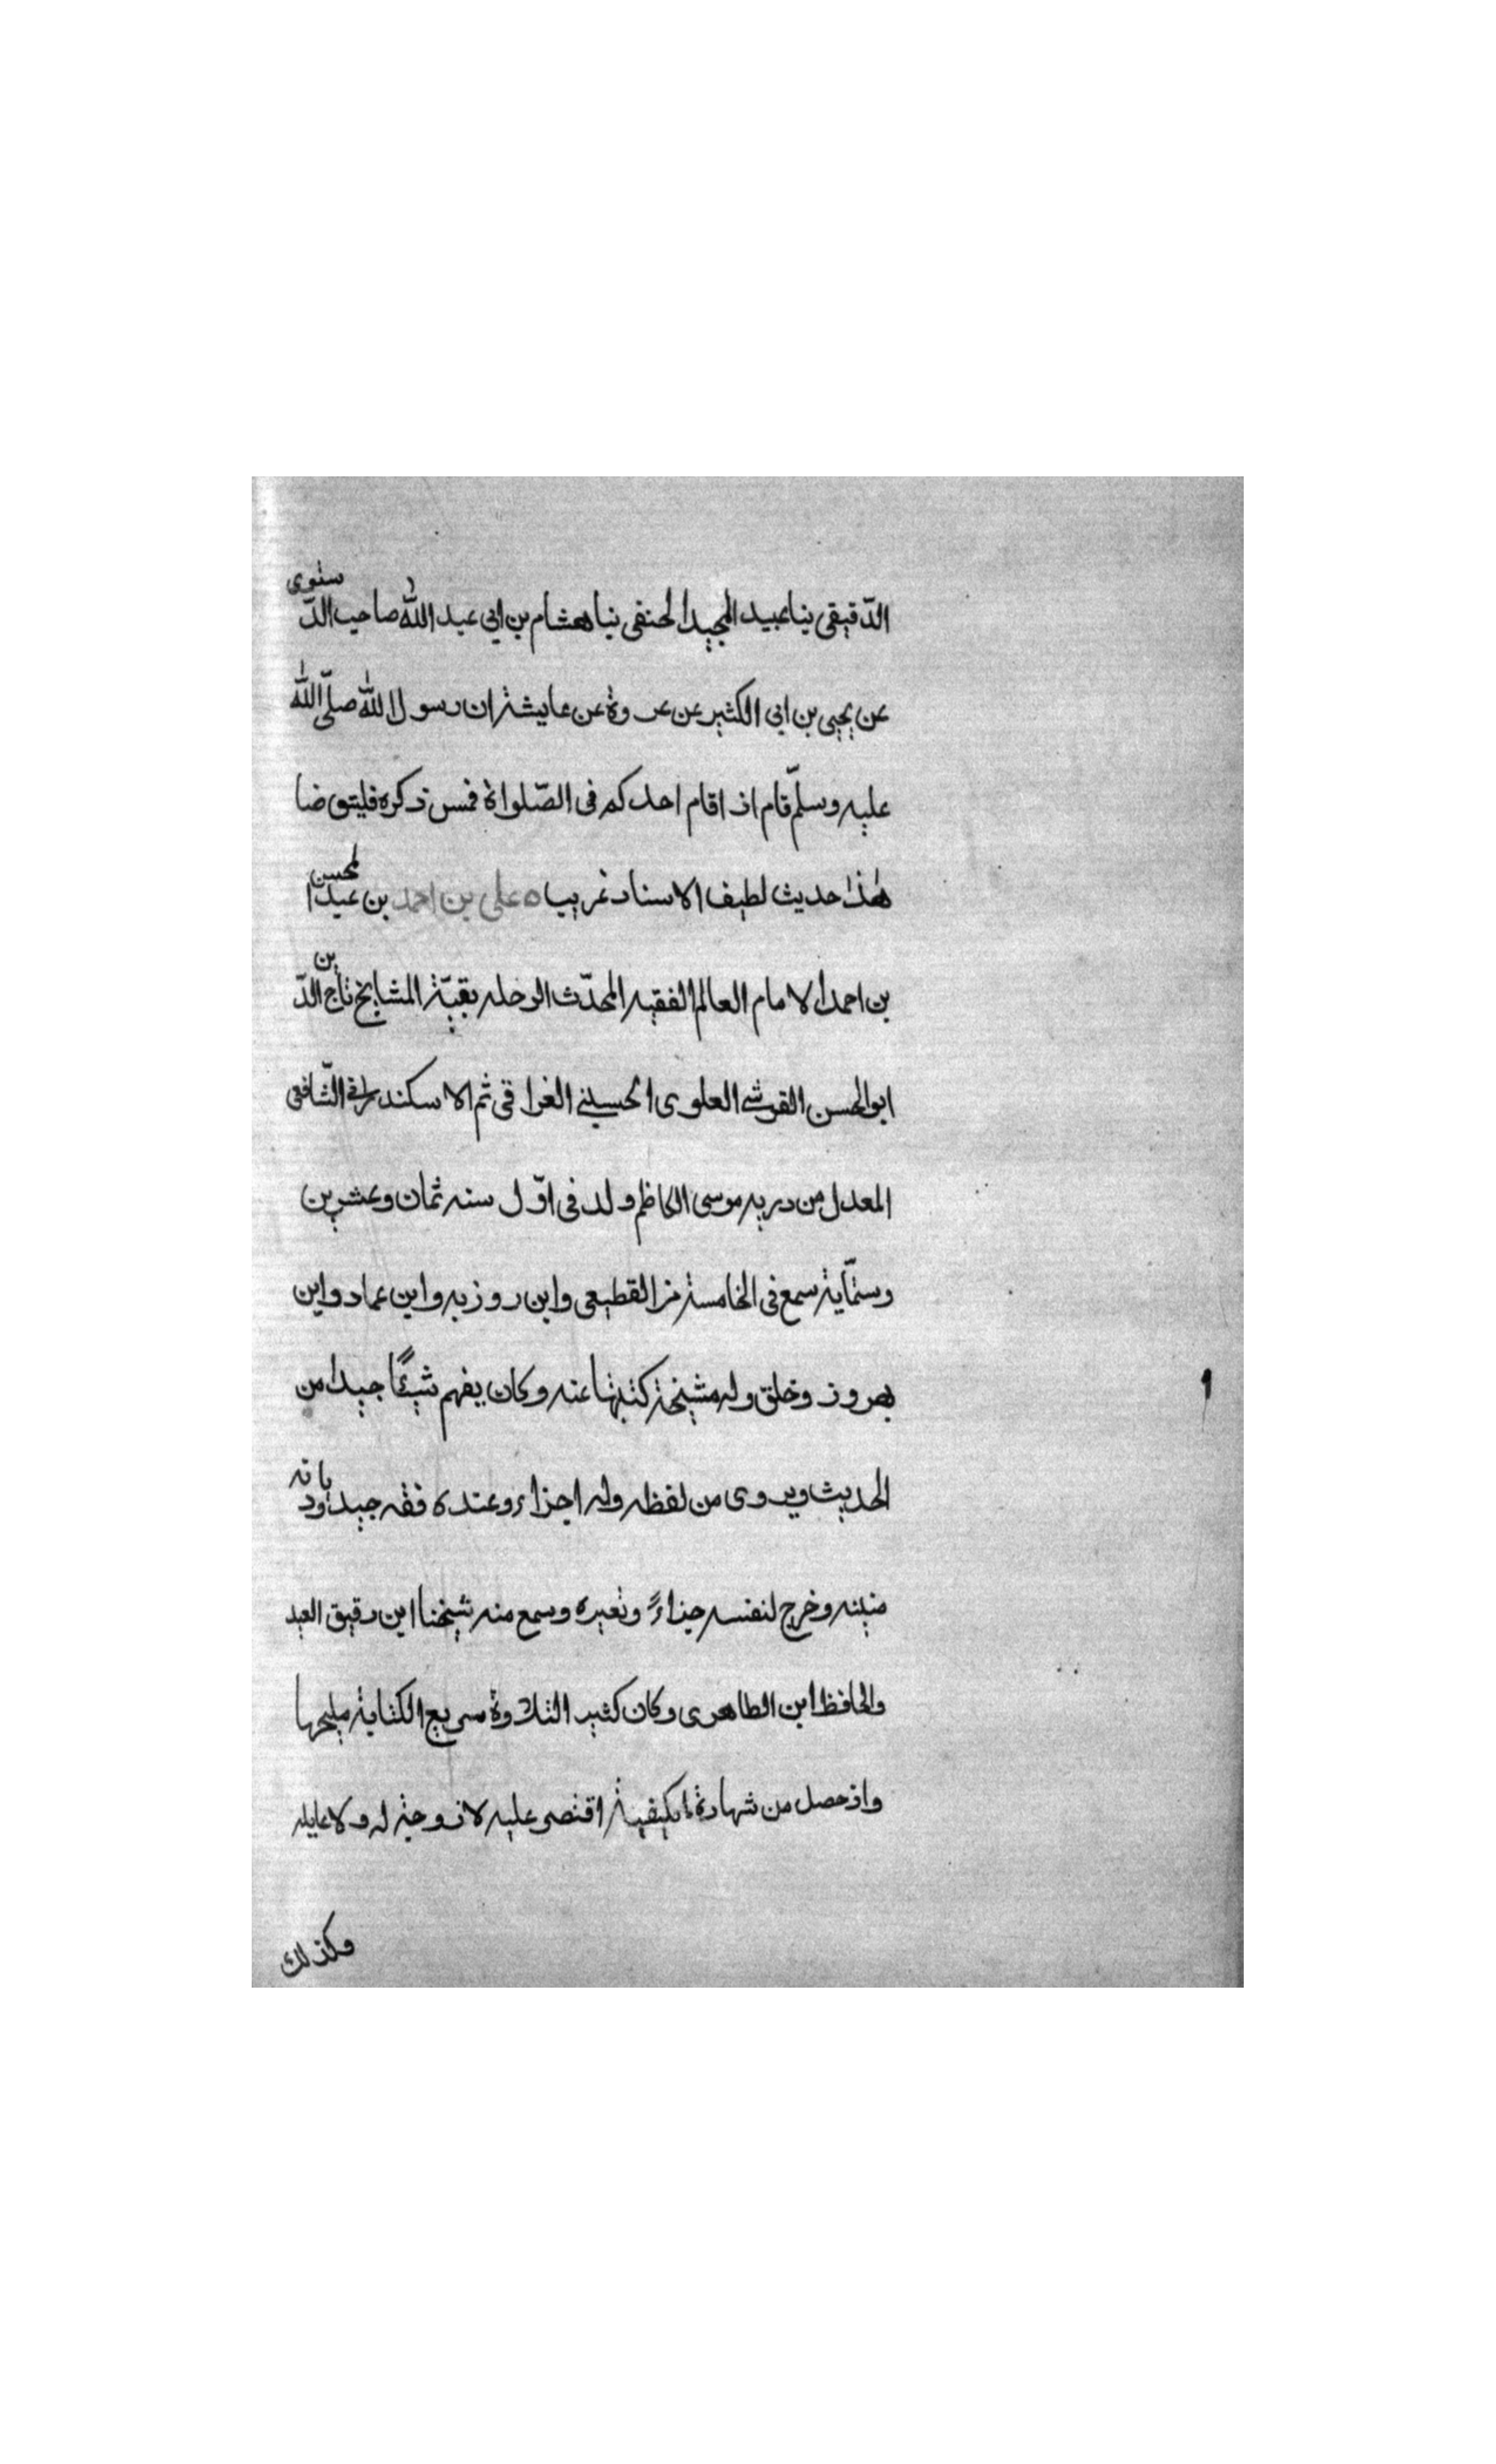 الدّقيقى نبا عبيد المجيد الحنفى نبا هشام بن ابي عبد الله صاحب الدّستوى
عن يحيى بن ابى الكثير عن عروة عن عايشة ان رسول الله صلّى الله
عليه وسلّم قام اذ اقام احدكم فى الصّلواة فمس ذكره فليتوضا
هٰذا حديث لطيف الاسناد غريب ه على بن احمد بن عبد المحسن
بن احمد الامام العالم الفقيه المحدّث الرحله بقيّة المشايخ تاج الدّين
ابو الحسن القرشى العلوى الحسينى الغراقى ثم الاسكندرانى الشّافعى
المعدل من دريه موسى الكاظم ولد فى اوّل سنه ثمان وعشرين
وستّماية سمع فى الخامسة من القطيعى وابن روزبه وابن عماد وابن
بهروز وخلق وله مشيخة كتبتها عنه وكان يفهم شيئًا جيدا من
الحديث ويروى من لفظه وله اجزاء وعنده فقه جيد اودبانه
متينه وخرج لنفسه جزاءً ولغيره وسمع منه شيخنا ابن دقيق العيد
والحافظ ابن الطاهرى وكان كثير التلاوة سريع الكتابة مليحها
واذ حصل من شهادة ما يكيفية اقتصى عليه لا زوجة له ولا عايله
وكذلك